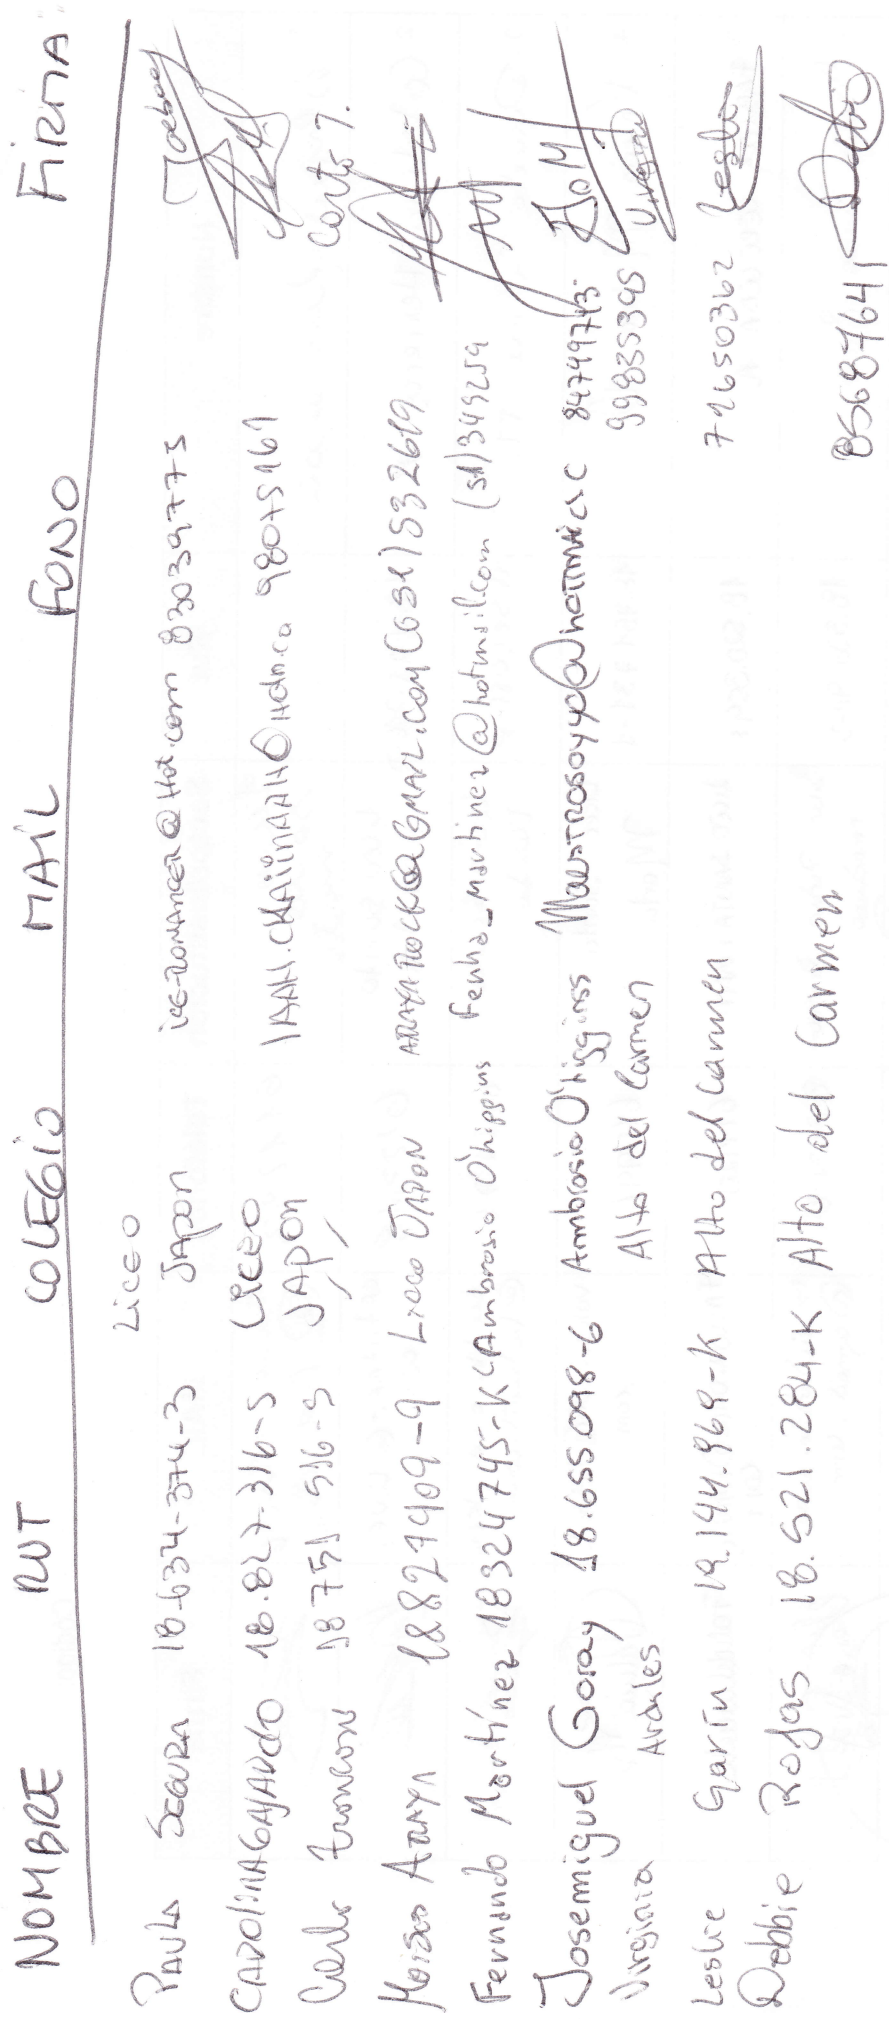 NOMBRE RUT COLEGIO MAIL FONO FIRMA
Paula Segura 18-634-374-3 Liceo Japon ice-romancer@Hot.com 83039773
CAROLINA GAJARDO 18.827-316-5 Liceo JAPON 98075161
Carlo Troncoso 18751 516-5 Carlo T.
Moises Araya 18827409-9 Liceo JAPON ARAYAROCK@GMAIL.COM (051)532619
Fernando Martínez 18324745-K Ambrosio O'higgins Fenha_Martinez@hotmail.com (51)349259
Josemiguel Goray 18.655.098-6 Ambrosio O'higgins Maestrosoyyo@hotmail.c 84749743
Virginia Ardiles Alto del Carmen 99835395 Virginia
Leslie Garín 19.144.969-K Alto del Carmen 72650362 Leslie
Debbie Rojas 18.521.284-K Alto del Carmen 85687641